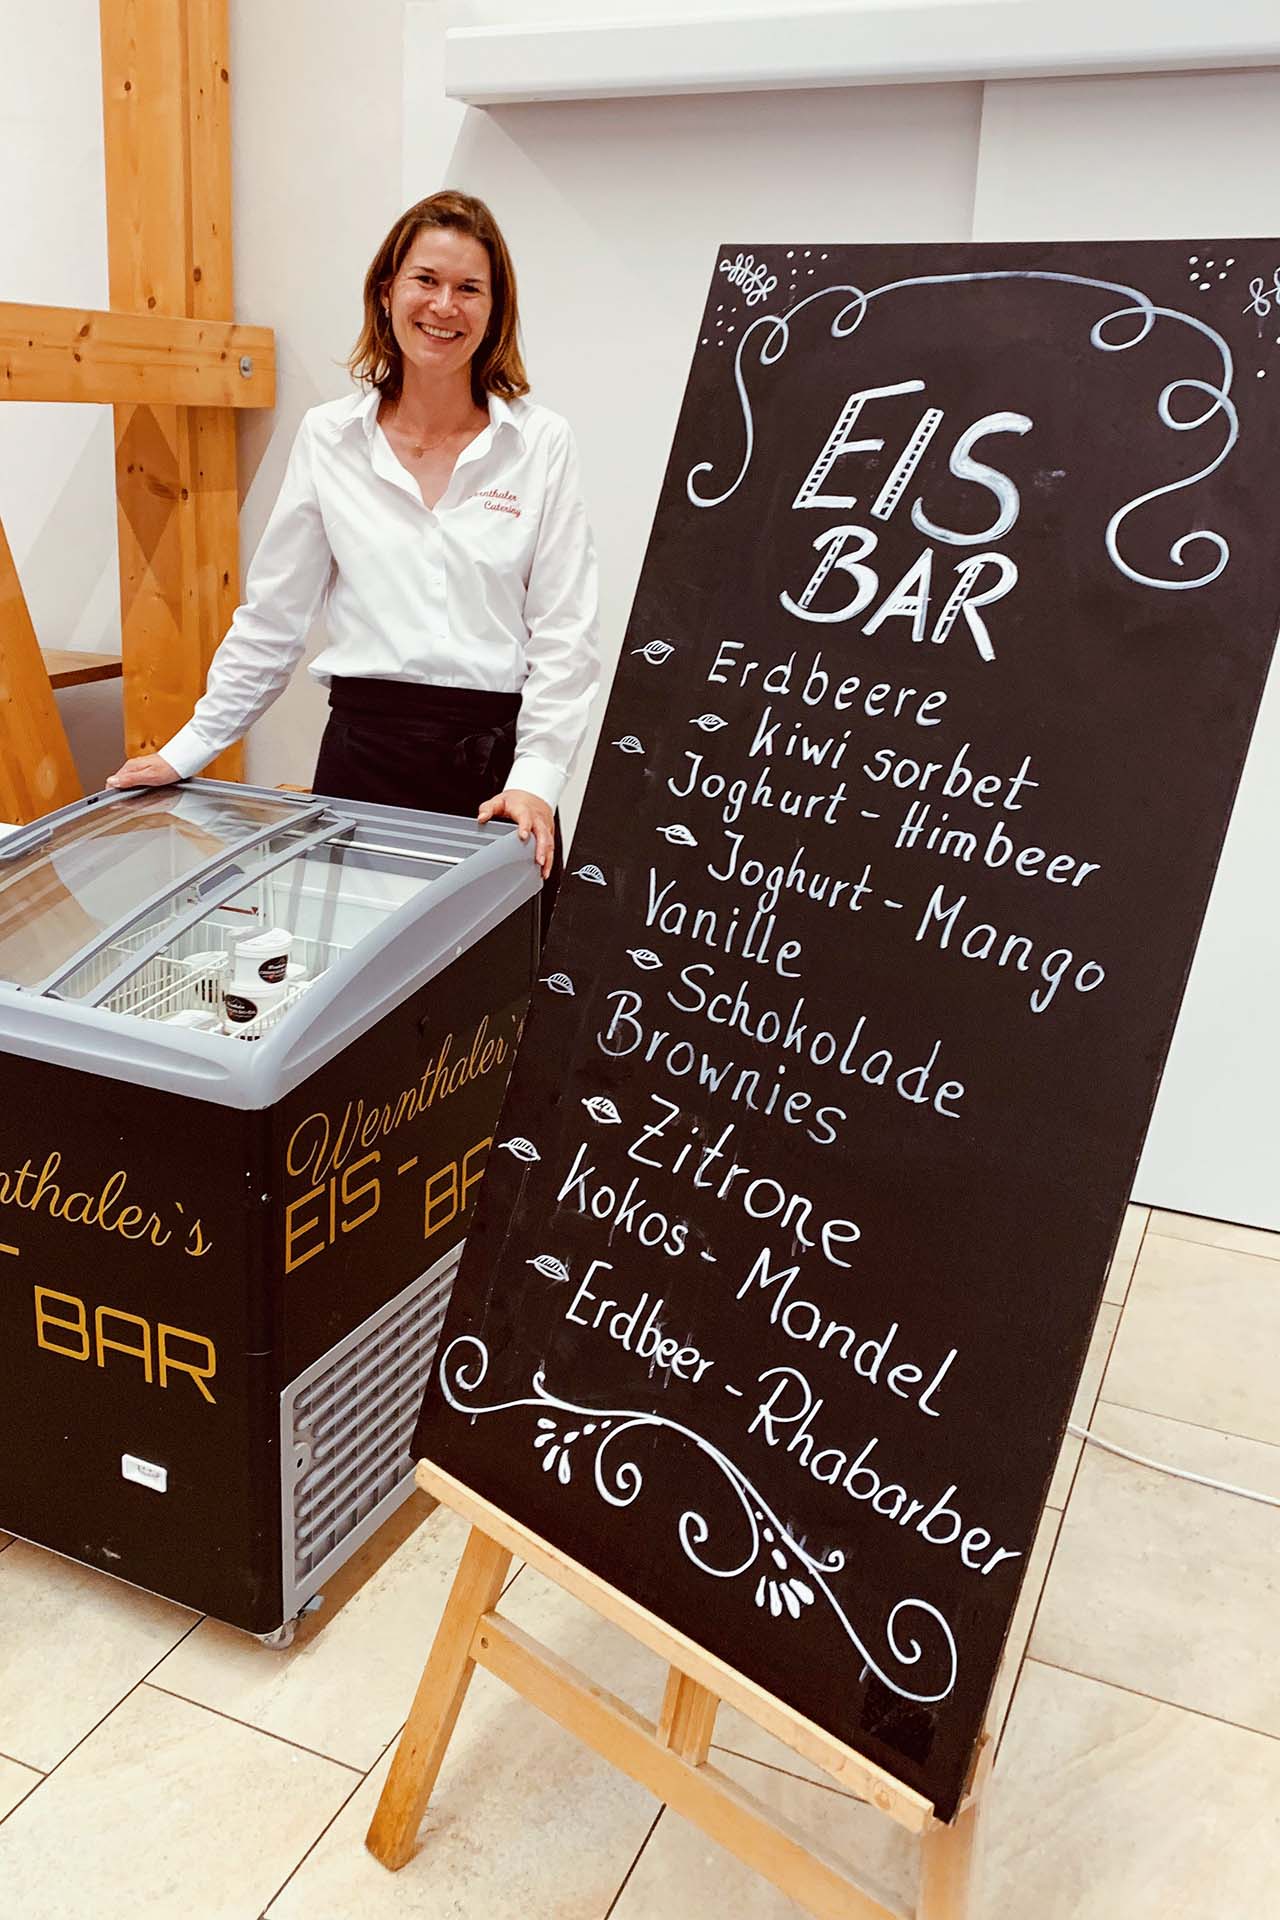 EIS
BAR
Erdbeere
Kiwi sorbet
Joghurt - Himbeer
Joghurt - Mango
Vanille
Schokolade
Brownies
Zitrone
Kokos - Mandel
Erdbeer - Rhabarber
Catering
Wernthaler's
EIS -
BAR